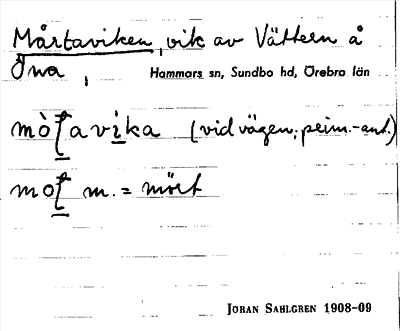 Mårtaviken, vik av Vättern å
Öna, Hammars sn, Sundbo hd, Örebro län
avika (vid vägen; peim.-ant.)
m. = mört
JÖRAN SAHLGREN 1908-09